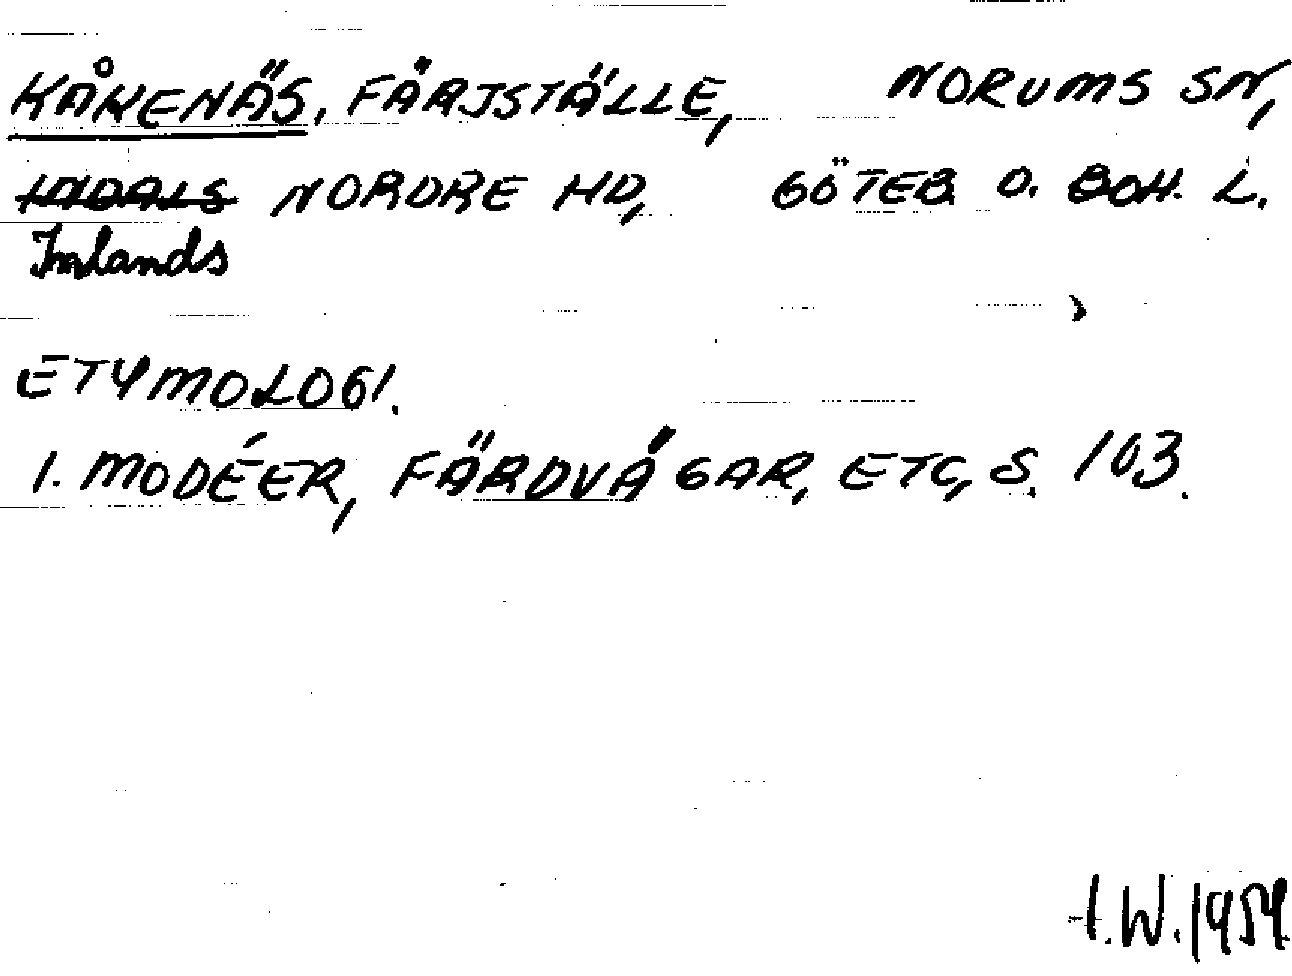 KÅKENÄS, FÄRJSTÄLLE, NORUMS SN,
INDALS NORDRE HD, GÖTEB. O. BOH. L.
Inlands
ETYMOLOGI.
1. MODÉER, FÄRDVÄGAR, ETC, S. 103.
I.W. 1959